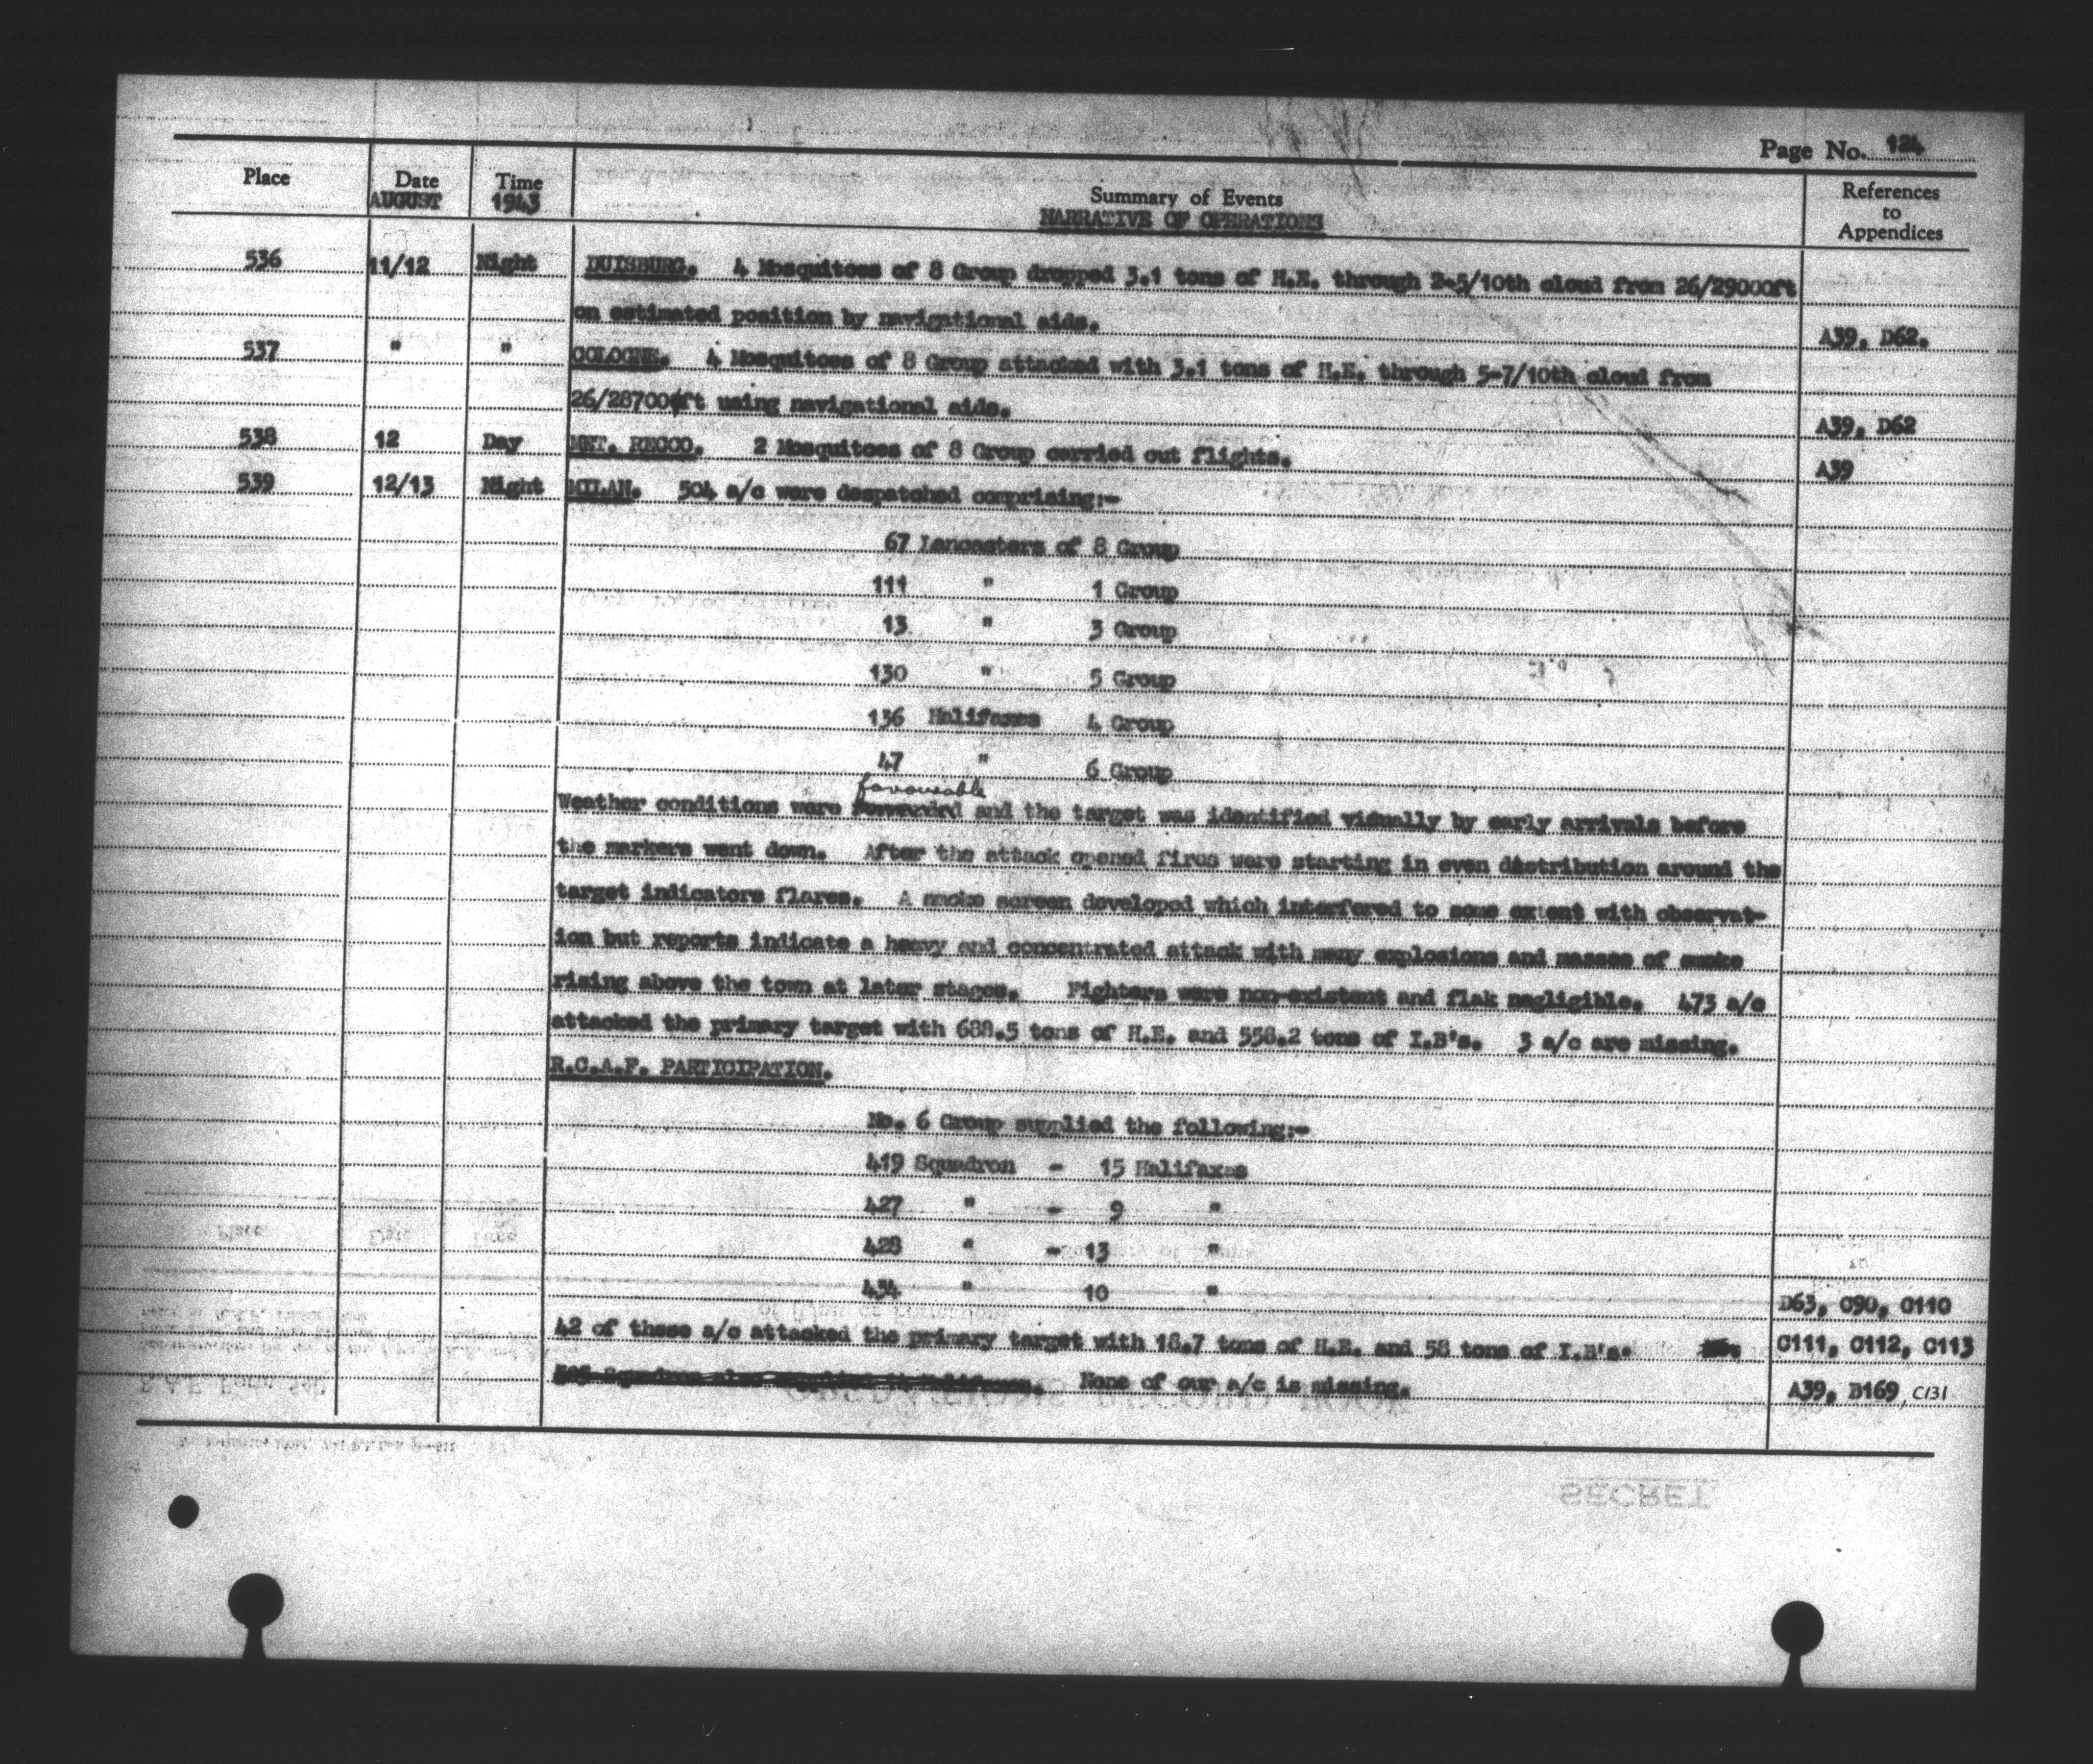 Page No. 124
Place Date Time Summary of Events References
AUGUST 1943 NARRATIVE OF OPERATIONS to
Appendices
536 11/12 Night DUISBURG. 4 Mosquitoes of 8 Group dropped 3.1 tons of H.E. through 2-5/10th cloud from 26/29000ft
on estimated position by navigational aids. A39, D62.
537 " " COLOGNE. 4 Mosquitoes of 8 Group attacked with 3.1 tons of H.E. through 5-7/10th cloud from
26/28700ft using navigational aids. A39, D62
538 12 Day MET. RECCO. 2 Mosquitoes of 8 Group carried out flights. A39
539 12/13 Night MILAN. 504 a/c were despatched comprising:-
67 Lancasters of 8 Group
111 " 1 Group
13 " 3 Group
130 " 5 Group
136 Halifaxes 4 Group
47 " 6 Group
favourable
Weather conditions were and the target was identified visually by early arrivals before
the markers went down. After the attack opened fires were starting in even distribution around the
target indicators flares. A smoke screen developed which interfered to some extent with observat-
ion but reports indicate a heavy and concentrated attack with many explosions and masses of smoke
rising above the town at later stages. Fighters were non-existent and flak negligible. 473 a/c
attacked the primary target with 688.5 tons of H.E. and 558.2 tons of I.B's. 3 a/c are missing.
R.C.A.F. PARTICIPATION.
No. 6 Group supplied the following:-
419 Squadron - 15 Halifaxes
427 " - 9 "
428 " - 13 "
434 " 10 " D63, C90, C110
42 of these a/c attacked the primary target with 18.7 tons of H.E. and 58 tons of I.B's. C111, C112, C113
None of our a/c is missing. A39, B169, C131
SECRET